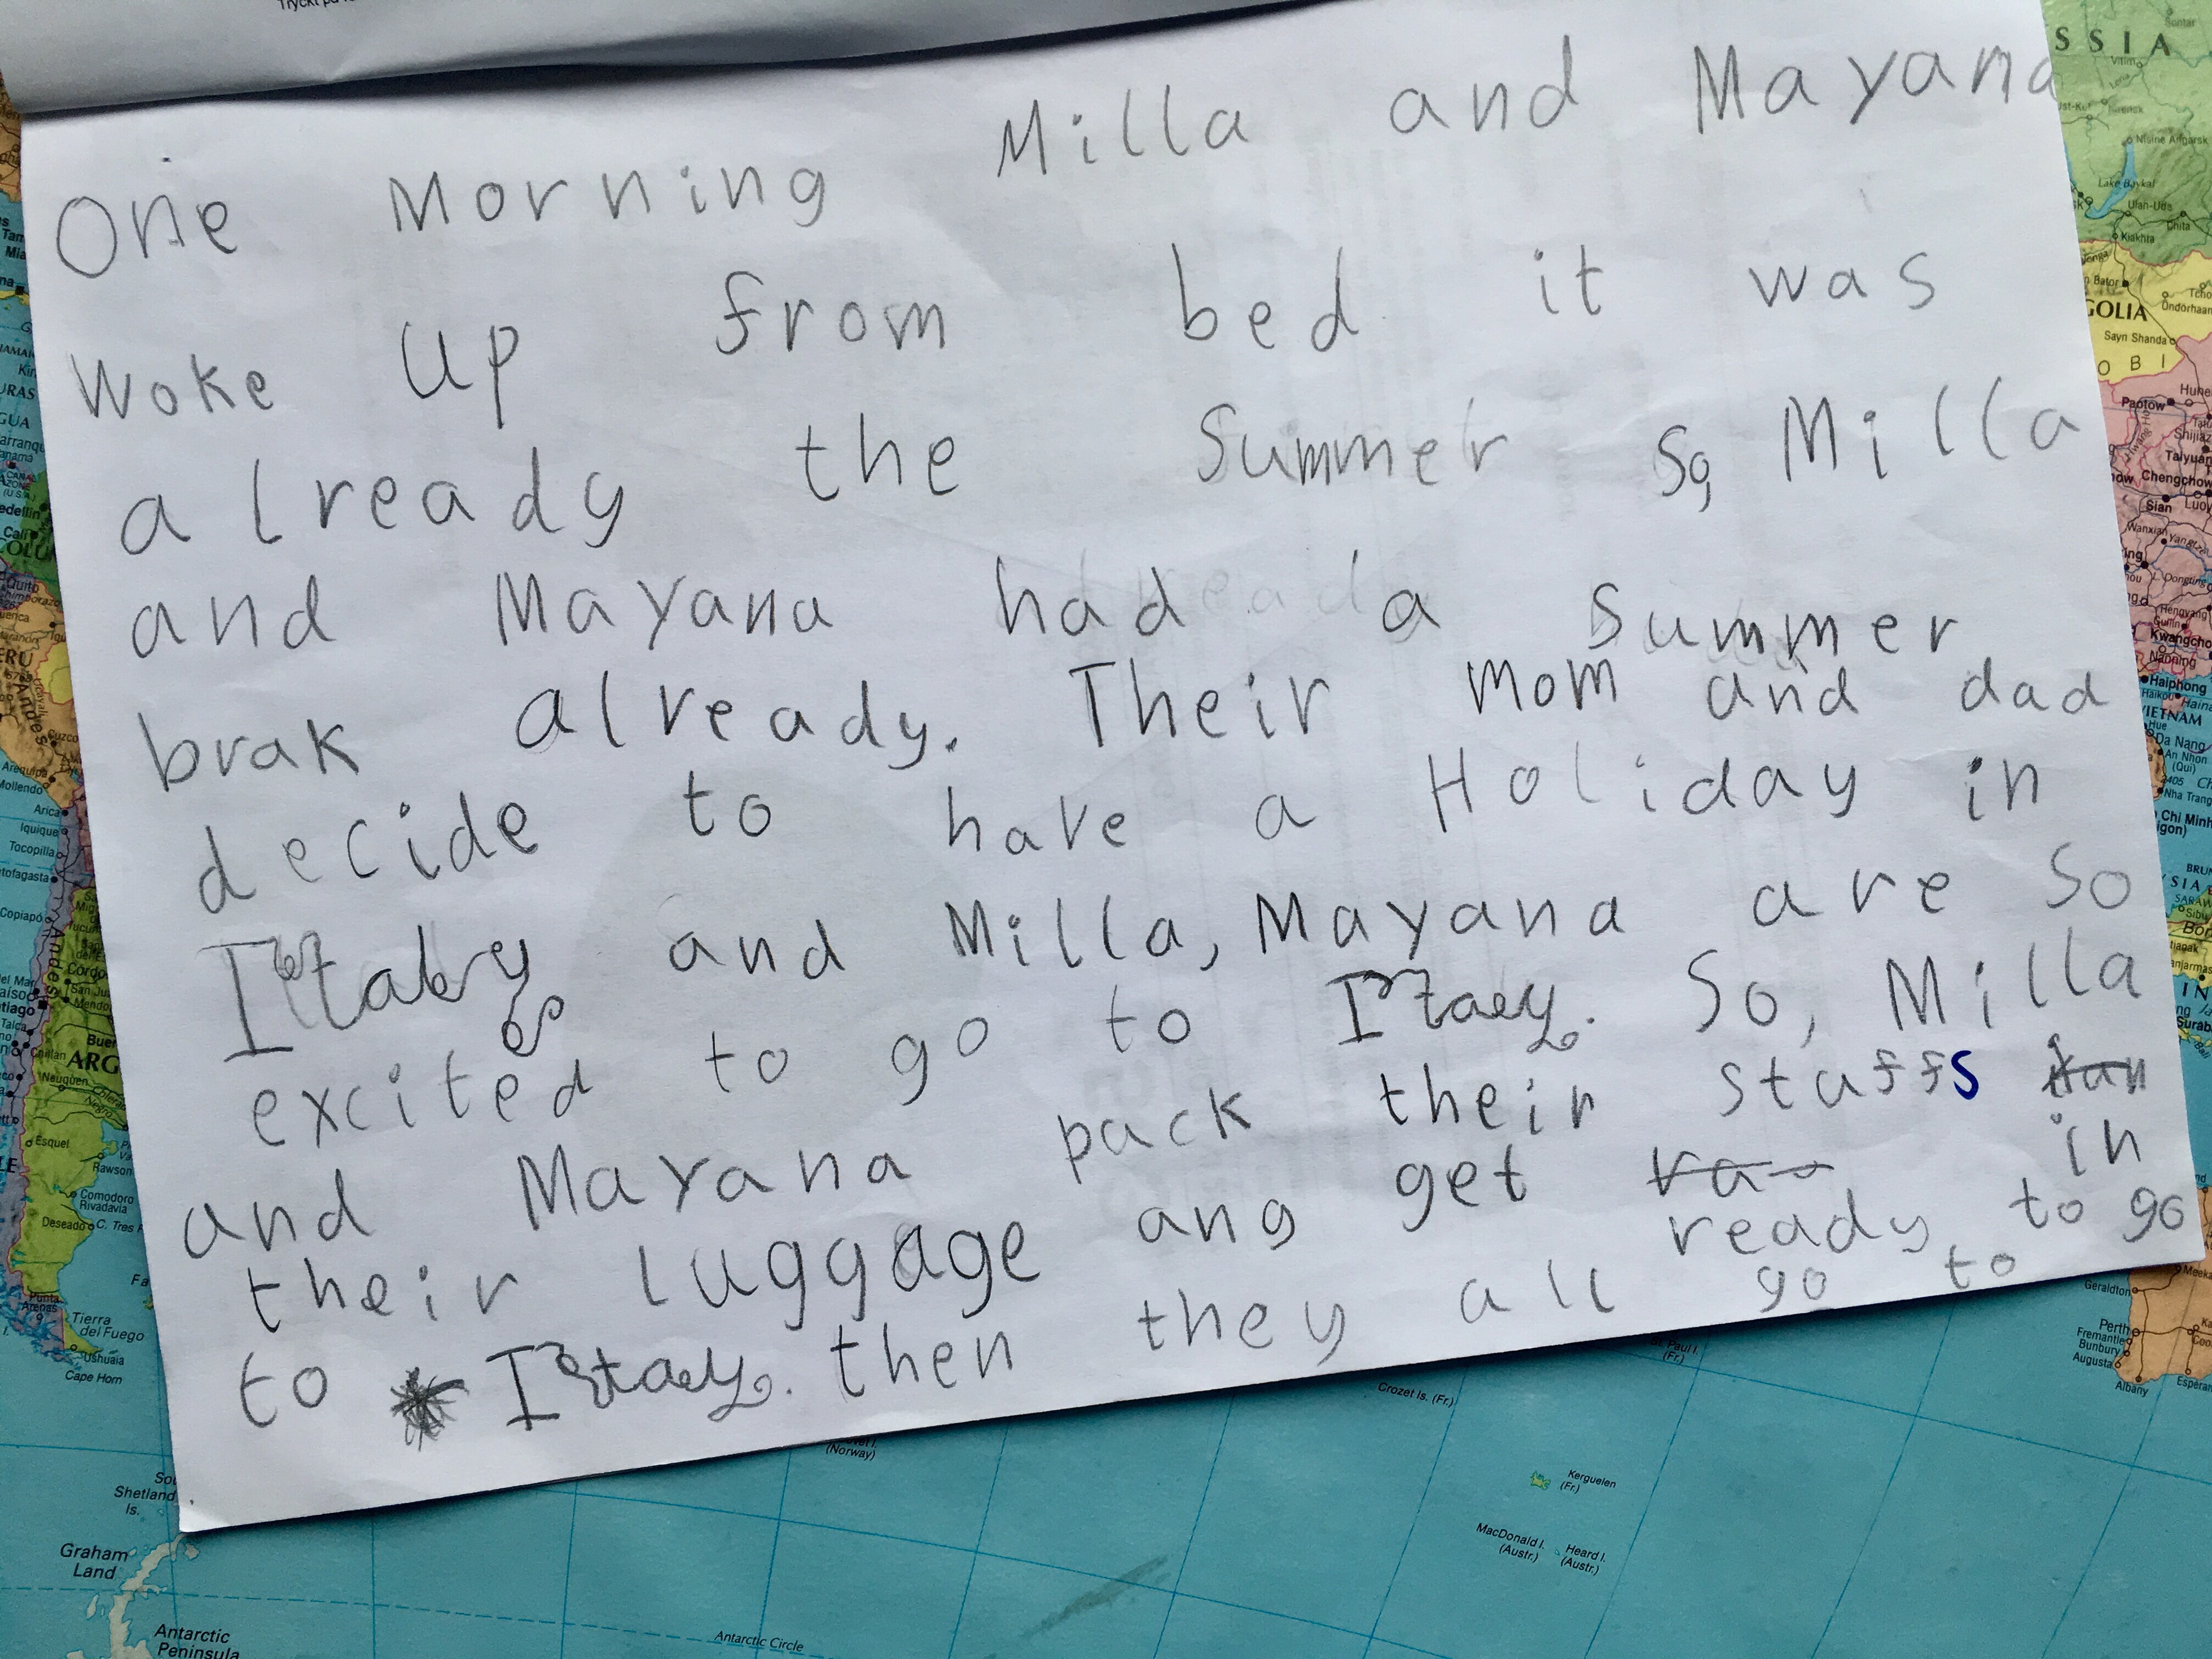 Tryckt på
One Morning Milla and Mayana
woke up from bed it was
already the Summer so, Milla
and Mayana had a summer
brak already. Their mom and dad
decide to have a Holiday in
Italy and Milla, Mayana are so
excited to go to Italy. So, Milla
and Mayana pack their stuffs
in
their luggage ang get ready to go
to Italy. then they all go to
SSIA
Lake Baykal
Nizine Angarsk
Ulan-Ude
Chita
Kiakhta
GOLIA
Sayn Shanda
OBI
Paotow
Taiyuan
Chengchow
Sian
Wanxian
Yangtze
Hengyang
Kwangcho
Nanning
Haiphong
VIETNAM
Hue
Da Nang
An Nhon
(Qui)
Nha Trang
Chi Minh
Quito
Andes
Cuzco
Arequipa
Mollendo
Arica
Iquique
Tocopilla
tofagasta
Copiapó
Andes
Cordo
San Ju
Mendo
ARG
Neuquen
Colorado
Negro
Esquel
Rawson
Comodoro
Rivadavia
Deseado
C. Tres
Punta
Arenas
Tierra
del Fuego
Ushuaia
Cape Horn
Geraldton
Perth
Fremantle
Bunbury
Augusta
Albany
St. Paul I.
(Fr.)
Crozet Is. (Fr.)
(Norway)
Kerguelen
(Fr.)
MacDonald I.
(Austr.)
Heard I.
(Austr.)
Shetland
Is.
Graham
Land
Antarctic
Peninsula
Antarctic Circle